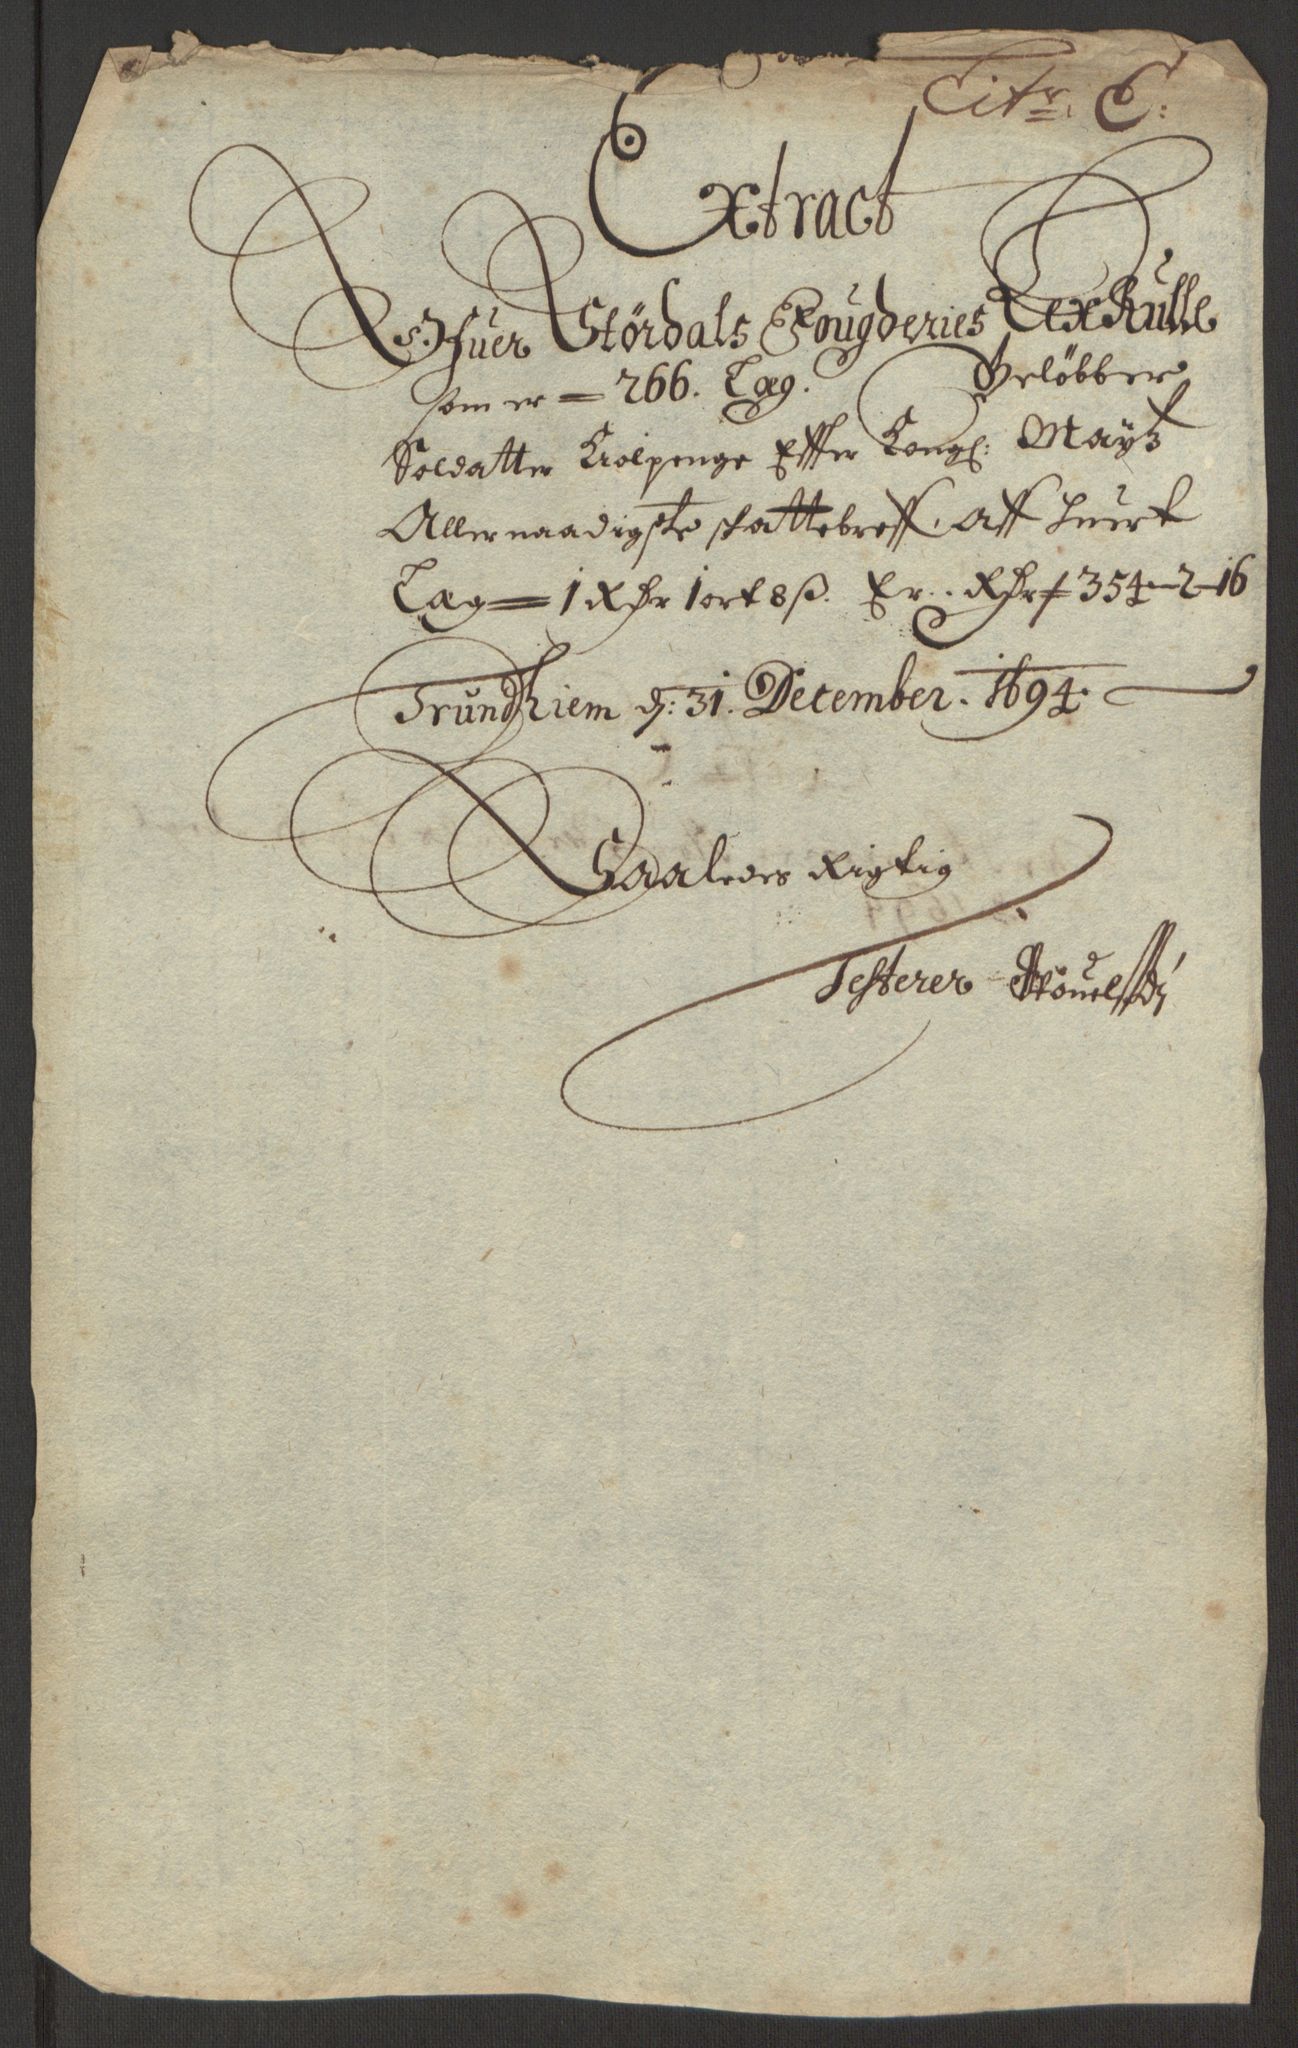 Litr. C:
Extract
Ofuer Stördals Fougderies LexRulle
som er = 266. Læg. Belöbber
Soldatter Kiolpenge Effter Kongl: Mayts
Allernaadigste skattebreff, Aff huert
Læg = 1 Rdr 1 ort 8 ß. Er. Rdr 354-2-16
Trundhiem dj: 31. December. 1694.
Saaledes Rigtig
Testerer